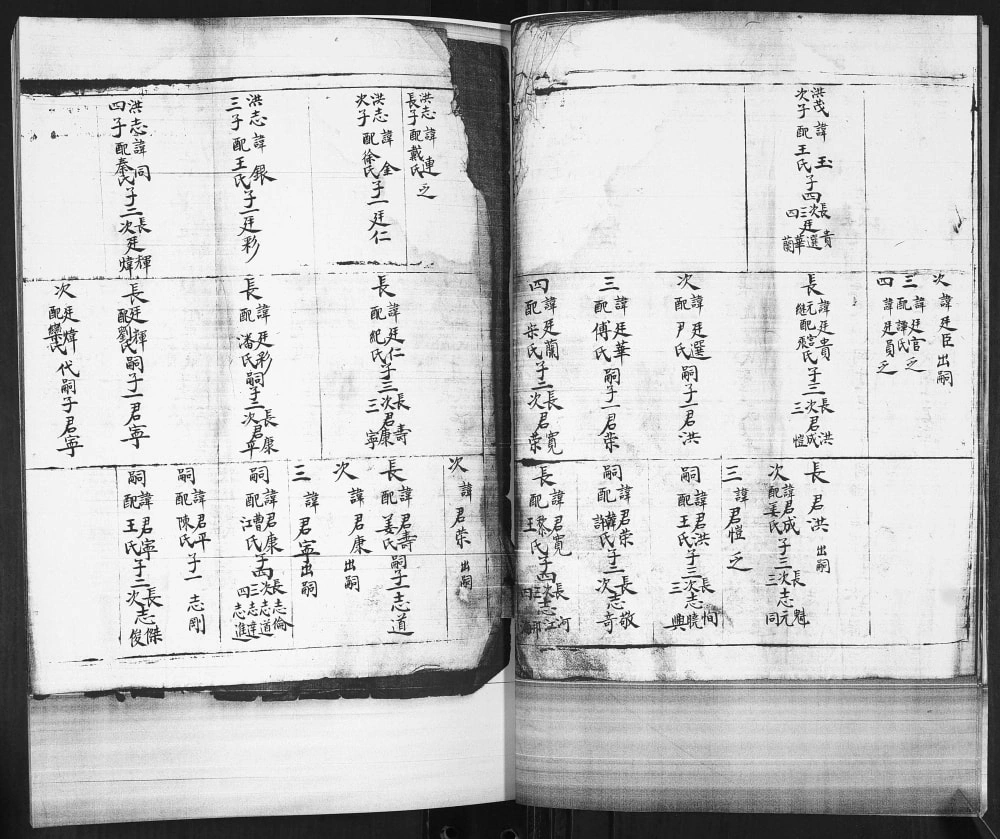 洪茂次子 諱玉 配王氏 子四 長廷貴 次廷選 三廷華 四廷蘭
次 諱廷臣 出嗣
三 諱廷官 配譚氏 乏
四 諱廷員 乏
長 諱廷貴 元配宮氏 繼配張氏 子三 長君洪 次君成 三君愷
次 諱廷選 配尹氏 嗣子一 君洪
三 諱廷華 配傅氏 嗣子一 君榮
四 諱廷蘭 配宋氏 子二 長君寬 次君榮
長 君洪 出嗣
次 諱君成 配姜氏 子三 長志魁 次志元 三志同
三 諱君愷 乏
嗣 諱君洪 配王氏 子三 長志恂 次志曉 三志興
嗣 諱君榮 配韓氏 許氏 子二 長志敬 次志奇
長 諱君寬 配黎氏 王氏 子四 長志河 次志江 三志 四志
洪志長子 諱連 配戴氏 乏
洪志次子 諱金 配徐氏 子一 廷仁
洪志三子 諱銀 配王氏 子一 廷彩
洪志四子 諱同 配秦氏 子二 長廷輝 次廷煒
長 諱廷仁 配紀氏 子三 長君壽 次君康 三君寧
長 諱廷彩 配潘氏 嗣子二 長君康 次君平
長 廷輝 配劉氏 嗣子一 君寧
次 廷煒 配欒氏 代嗣子君寧
次 諱君榮 出嗣
長 諱君壽 配姜氏 嗣子一 志道
次 諱君康 出嗣
三 諱君寧 出嗣
嗣 諱君康 配曹氏 江氏 子四 長志倫 次志道 三志達 四志進
嗣 諱君平 配陳氏 子一 志剛
嗣 諱君寧 配王氏 子二 長志傑 次志俊